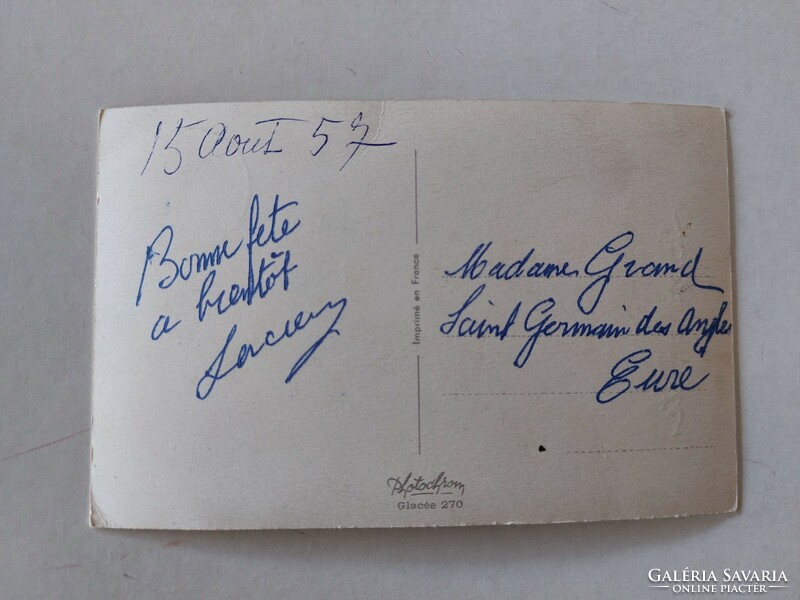 15 Aout 57
Bonne fete
a bientôt
Madame Grand
Saint Germain des Angles
Eure
Imprimé en France
Photochrom
Glacée 270
GALÉRIA SAVARIA
ONLINE PIACTÉR